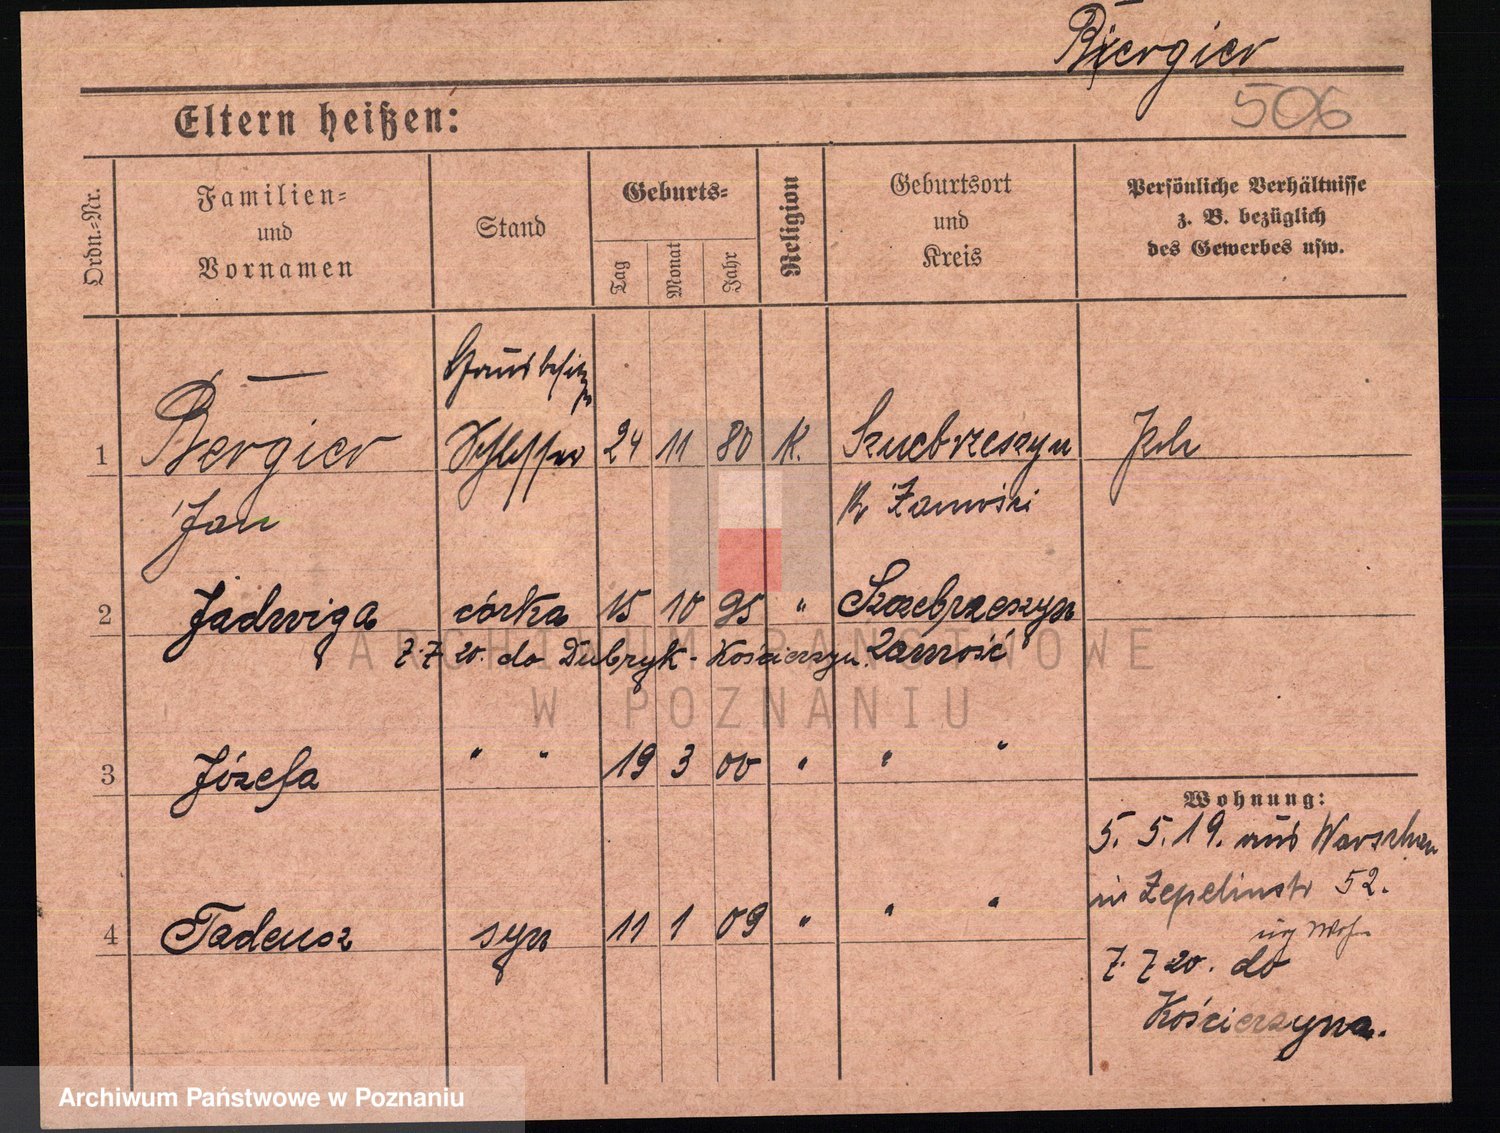 Bergier
506
Eltern heißen:
Ordn.-Nr.
Familien-
und
Vornamen
Stand
Geburts-
Tag
Monat
Jahr
Religion
Geburtsort
und
Kreis
Persönliche Verhältnisse
z. B. bezüglich
des Gewerbes usw.
Hausbesitzer
1 Bergier Schlosser 24 11 80 K. Szcebrzeszyn Pole
Jan Kr Zamości
2 Jadwiga córka 15 10 95 " Szczebrzeszyn
7.7 20. do Dubryk - Kościerzyn. Zamość
3 Józefa " " 19 3 00 " " "
Wohnung:
5. 5. 19. aus Warschau
in Zepelinstr 52.
4 Tadeusz syn 11 1 09 " " "
7. 7 20. do
Kościerzyna.
ARCHIWUM PAŃSTWOWE
W POZNANIU
Archiwum Państwowe w Poznaniu